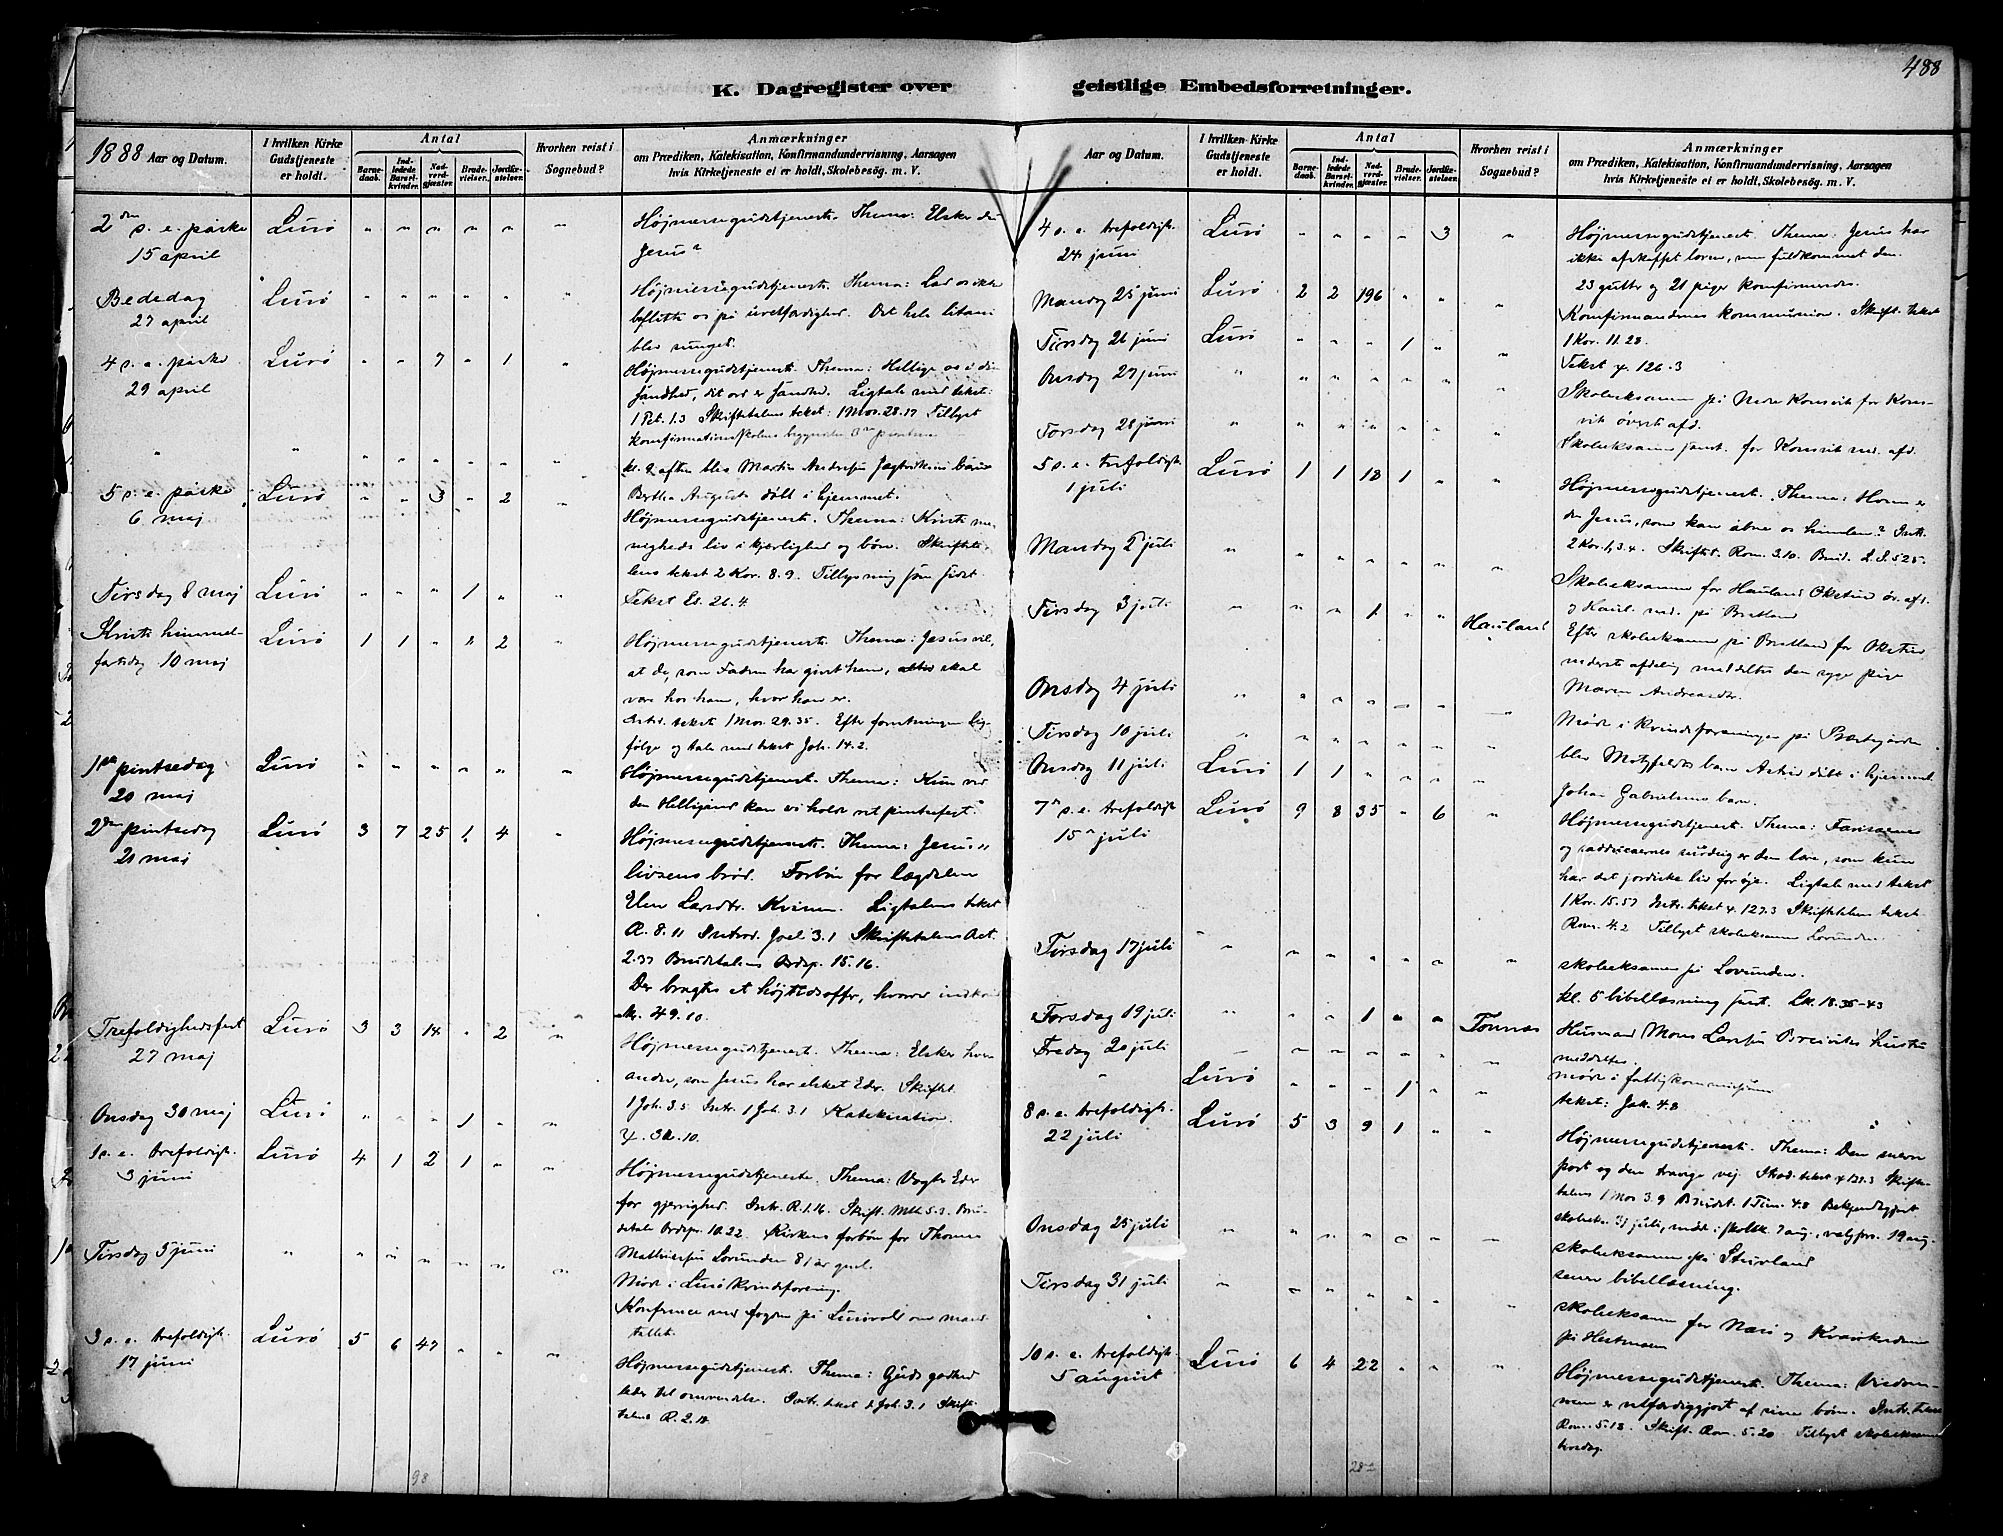 488
K. Dagregister over geistlige Embedsforretninger.
1888 Aar og Datum.
I hvilken Kirke Gudstjeneste er holdt.
Antal
Barnedaab.
Indledede Barselkvinder.
Nadverdgjæster.
Brudevielser.
Jordfæstelser.
Hvorhen reist i Sognebud?
Anmærkninger
om Prædiken, Katekisation, Konfirmandundervisning, Aarsagen
hvis Kirketjeneste ei er holdt, Skolebesøg. m. V.
2den s. e. påske Lurö " " " " " " Höjmessegudstjeneste. Thema: Elsker du
15 april Jesus?
Bededag Lurö " " " " " " Höjmessegudstjeneste. Thema: Lad os ikke
27 april beflitte os på uretfærdighed. Det hele litani
blev sunget.
4 s. e. påske Lurö " " 7 " 1 " Höjmessegudstjenest. Thema: Hellige os i din
29 april sandhed, dit ord er sandhed. Ligtale med tekst:
1 Pet. 1.3 Skriftetalens tekst: 1 Mos. 28.17 Tillyst
konfirmationsskolens begyndelse
" " " " " " " " kl. 2 aften blev Martin barn
5 s. e. påske Lurö " " 3 " 2 " Berthe Augusta döbt i hjemmet.
6 maj Höjmessegudstjeneste. Thema: Kristi me-
nigheds liv i kjærlighed og bön. Skrifteta-
lens tekst 2 Kor. 8.9. Tillysning
Tirsdag 8 maj Lurö " " " 1 " " Tekst Es. 26.4
Kristi himmel- Lurö 1 1 " " 2 " Höjmessegudstjeneste. Thema: Jesus vil,
fartsdag 10 maj at de, som Faderen har givet ham, skal
være hos ham, hvor han er.
tekst 1 Mos. 29.35. Efter forretningen lig-
fölge og tale med tekst Joh. 14.2.
1ste pintsedag Lurö " " " " " " Höjmessegudstjenest. Thema: Kun ved
20 maj den Helligånd kan vi holde ret pintsefest.
2den pintsedag Lurö 3 7 25 1 4 " Höjmessegudstjeneste. Thema: Jesus
21 maj livsens bröd. Forbön for
Elen Larsdtr. Kvinen. Ligtalens tekst
R. 8.11 Introd. Joel 3.1 Skriftetalens Act.
2.37 Brudetalens Ordsp. 15.16.
Der bragtes et höjtidsoffer, hvorav indkom
Kr. 49.10.
Trefoldighedsfest Lurö 3 3 14 " 2 " Höjmessegudstjenest. Thema: Elsker hver-
27 maj andre, som Jesus har elsket Eder. Skriftet.
1 Joh. 3.5 Intr. 1 Joh. 3.1 Katekisation.
Onsdag 30 maj Lurö " " " 1 " "
1 s. e. trefoldigh. Lurö 4 1 2 1 " " Höjmessegudstjeneste. Thema: Vogter Eder
3 juni for gjerrighed. Intr. R. 1.16. Skift. Mth 5.3. Bru-
detale Ordsp. 10.22. Kirkens forbön for Thomas
Mathiassen Lovunden 81 år gml.
Tirsdag 5 juni " " " " " " " Möde i Lurö kvindeforening.
Konference med fogden på Lurövold om mand-
tallet.
3 s. e. trefoldigh. Lurö 5 6 47 " " " Höjmessegudstjenest. Thema: Guds godhed
17 juni leder til omvendelse. Intr. tekst 1 Joh. 3.1 Skrift-
talens R. 2.4
98
Aar og Datum.
I hvilken Kirke Gudstjeneste er holdt.
Antal
Barnedaab.
Indledede Barselkvinder.
Nadverdgjæster.
Brudevielser.
Jordfæstelser.
Hvorhen reist i Sognebud?
Anmærkninger
om Prædiken, Katekisation, Konfirmandundervisning, Aarsagen
hvis Kirketjeneste ei er holdt, Skolebesøg. m. V.
4 s. e. trefoldigh. Lurö " " " " 3 " Höjmessegudstjenest. Thema: Jesus har
24 juni ikke afskaffet loven, men fuldkommet den.
23 gutter og 21 piger konfirmeredes.
Mandag 25 juni Lurö 2 2 196 " " " Konfirmandernes kommunion. Skrift. tekst
1 Kor. 11.28.
Tirsdag 26 juni Lurö " " " 1 " " Tekst ψ. 126.3
Onsdag 27 juni " " " " " " " Skoleeksamen på Nedre Konsvik for Kons-
vik överste afd.
Torsdag 28 juni " " " " " " " Skoleeksamen samt. for Konsvik ned. afd.
5 s. e. trefoldigh. Lurö 1 1 18 1 " " Höjmessegudstjenest. Thema: Hvem er
1 juli den Jesus, som kan åbne os himlen? Intr.
2 Kor. 1, 3.4. Skriftet. Rom. 3.10. Brud. L.S. 525.
Mandag 2 juli " " " " " " " Skoleeksamen for Hauland Okstind öv. afd.
og Haul. ned. på Bratland
Tirsdag 3 juli " " " 1 " " Hauland Efter skoleeksamen på Bratland for Okstind
nederste afdeling meddeltes den syge pige
Maren Andreasdtr.
Onsdag 4 juli " " " " " " " Möde i kvindeforeningen på Prestegården
Tirsdag 10 juli " " " " " " " blev Motzfeldts barn Astrid döbt i hjemmet
Onsdag 11 juli Lurö 1 1 " " " " Johan Gabrielsens barn.
7de s. e. trefoldigh. Lurö 9 8 35 " 6 " Höjmessegudstjenest. Thema: Farisæernes
15 juli og sadducæernes surdeig er den lære, som kun
har det jordiske liv for öje. Ligtale med tekst
1 Kor. 15.57 Intr. tekst ψ. 127.3 Skriftetalens tekst
Rom. 4.2 Tillyst skoleeksamen Lovunden.
Tirsdag 17 juli " " " " " " " skoleeksamen på Lovunden.
kl. 5 bibellæsning sst. Lk. 18.35-43
Torsdag 19 juli " " " 1 " " Tonnes Husmand Mons Larssen Breivikens hustru
meddeltes.
Fredag 20 juli " " " " " " " möde i fattigkommissjonen
" Lurö " " " 1 " " tekst: Jak. 4.8
8 s. e. trefoldigh. Lurö 5 3 9 1 " " Höjmessegudstjenest. Thema: Den snevre
22 juli port og den trange vej. Introd. tekst ψ 127.3 Skrifte-
talens 1 Mos 3.9 Brudet. 1 Tim. 4.8 Bekjendtgjort
skoleeks. 31 juli, möde i skolek. 7 aug., valgfor. 19 aug.
Onsdag 25 juli " " " " " " " skoleeksamen på Stuvland
senere bibellæsning.
Tirsdag 31 juli " " " " " " " skoleeksamen for Næsö og
på Hestmoen
10 s. e. trefoldigh. Lurö 6 4 22 " " " Höjmessegudstjenest. Thema: Visdom-
5 august men er retfærdiggjort af sine börn. Intr. tekst
Rom. 5.18. Skrift. Rom. 5.20 Tillyst skoleeksamen
torsdag.
282